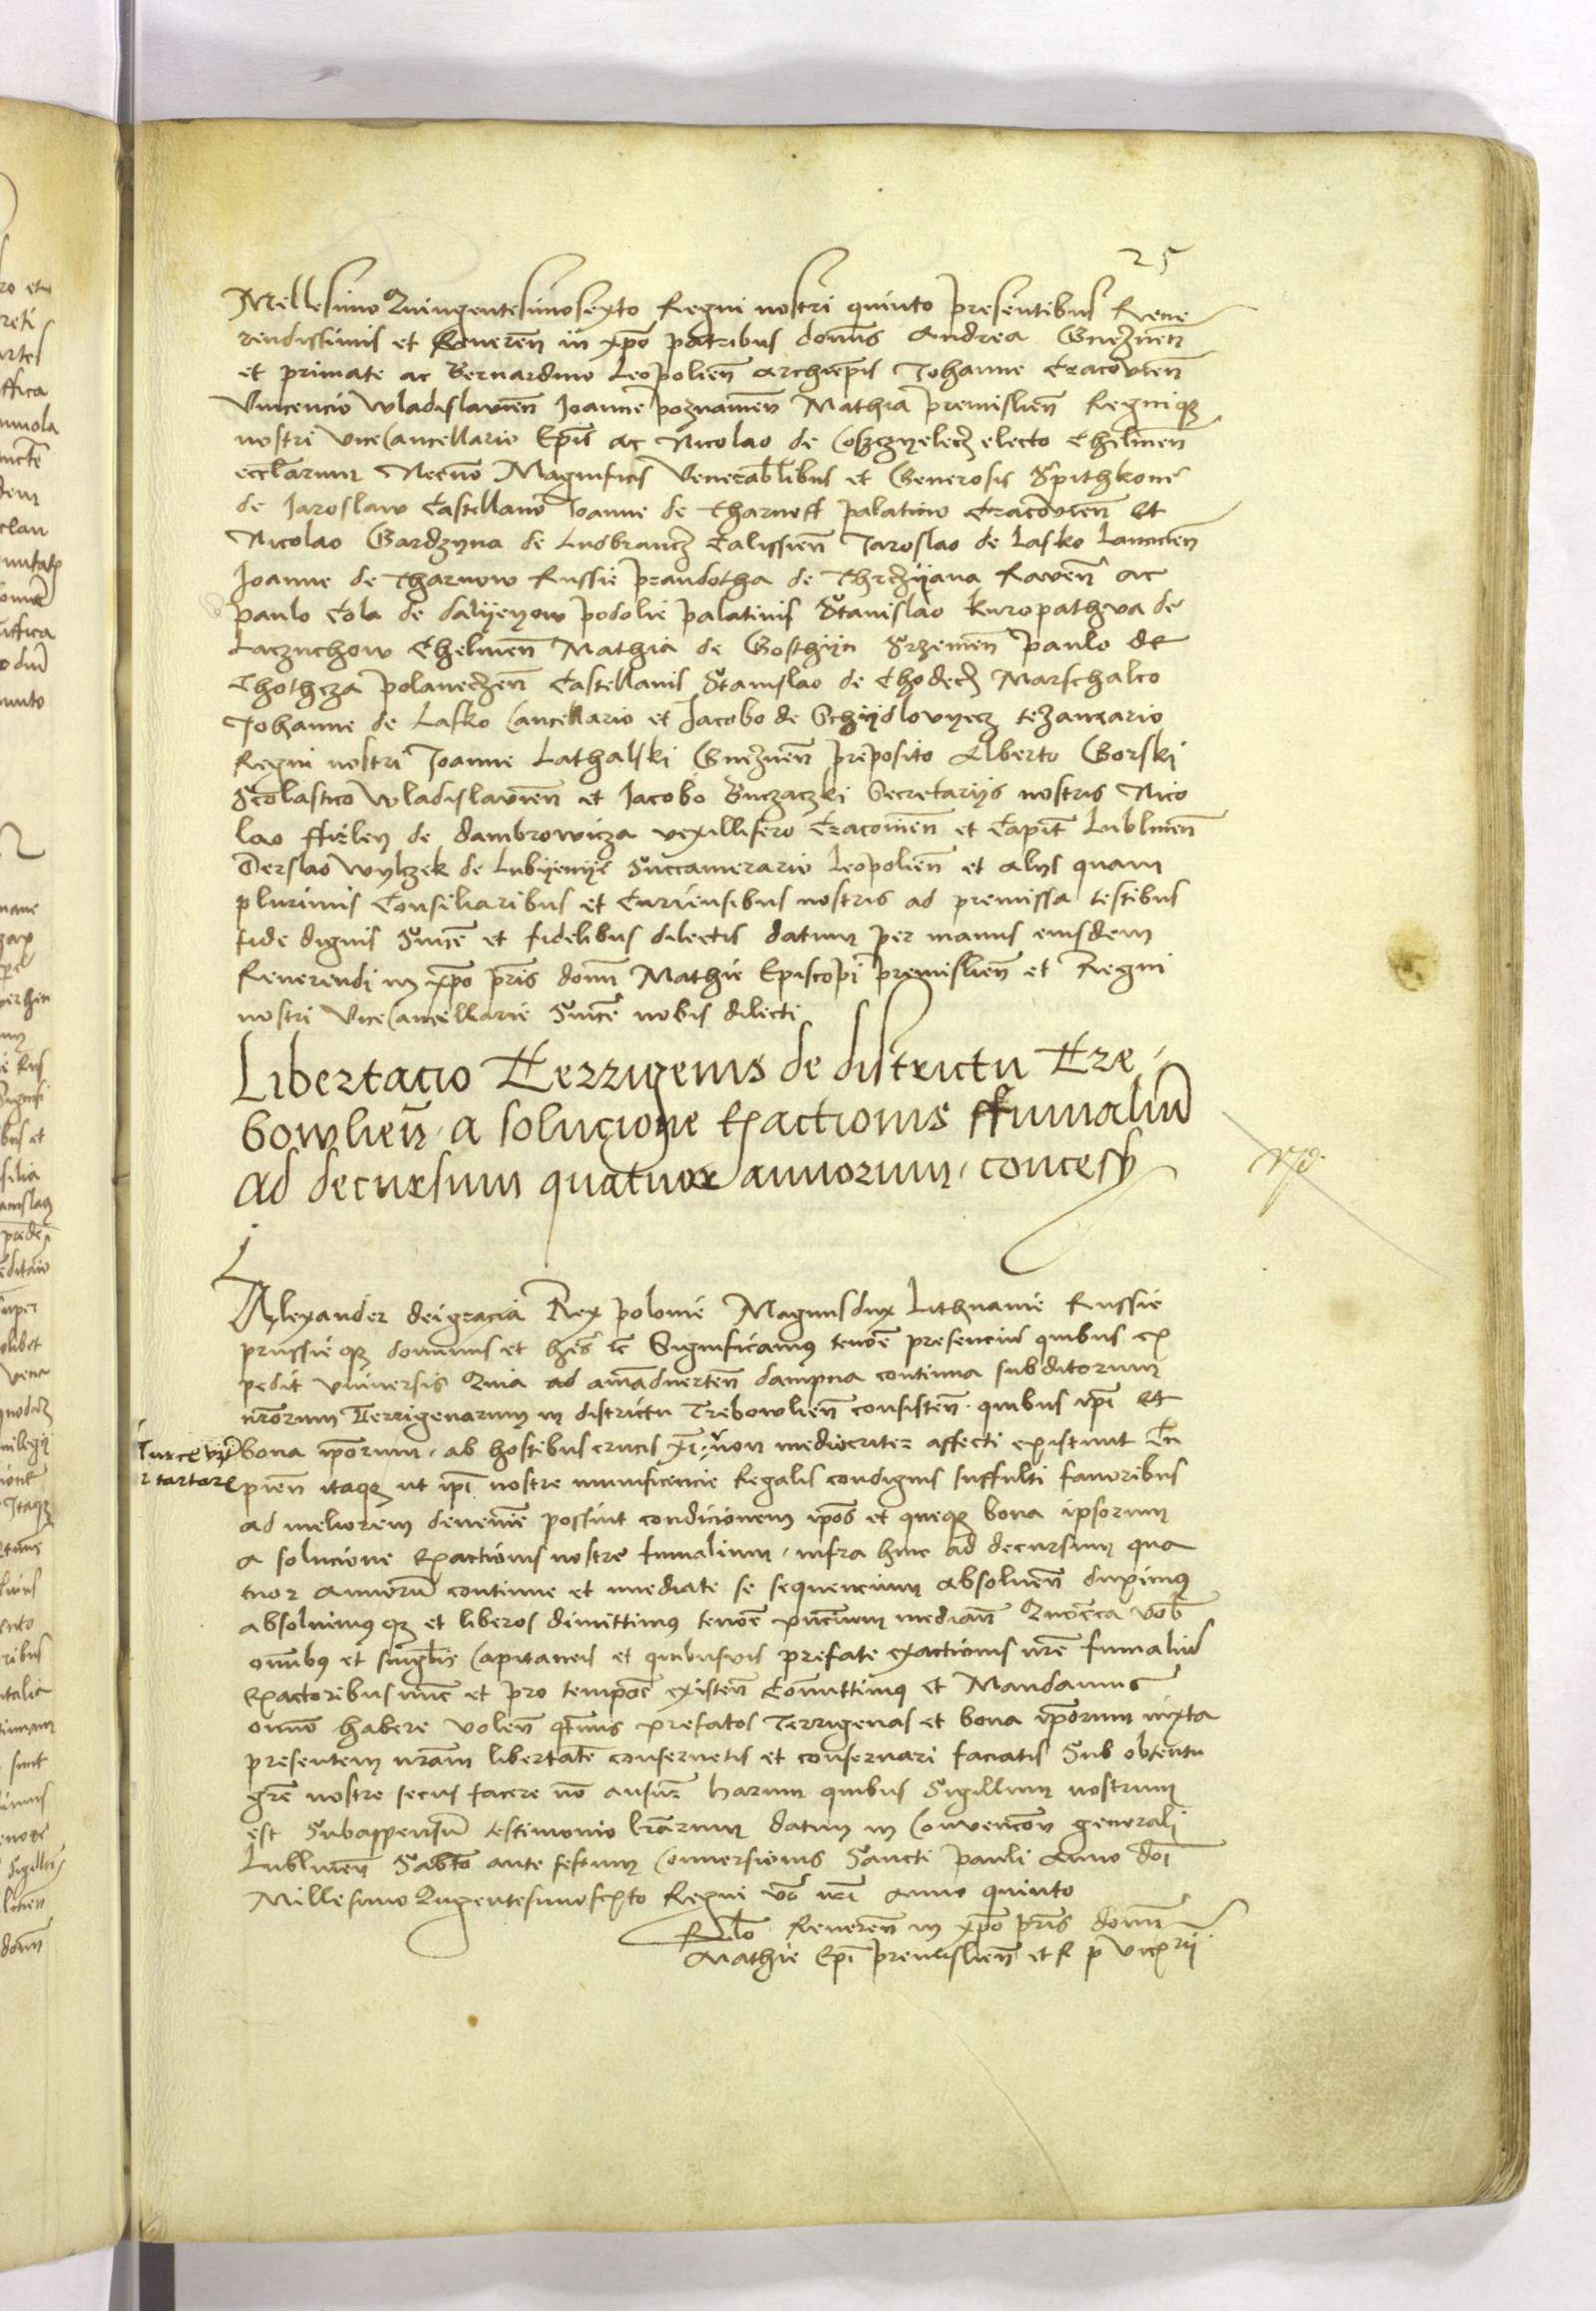 25
Millesimo Quingentesimosexto Regni nostri quinto presentibus Reve
rendissimis et Reveren̄ in xp̄o patribus domīs Andrea Gneznen̄
et primate ac Bernardino Leopolien̄ archiep̄is Johanne Cracovien̄
Vincencio Wladislavien̄ Joanne poznanien̄ Mathia premislien̄ Regniq3
nostri ViceCancellario Ep̄is ac Nicolao de Cosczyelecz electo Chelmen̄
eccl̄arum Necnō Magnificis Venerabilibus et Generosis Spithkone
de Jaroslaw Castellano Joanne de Tharnoff palatino Cracovien̄ et
Nicolao Gardzyna de Ludbrancz Calissien̄ Jaroslao de Lasko Lancicien̄
Joanne de Tharnow Russie prandotha de Thrczijana Raven̄ ac
paulo Cola de dalyeyow podolie palatinis Stanislao kuropathva de
Laczuchow Chelmen̄ Mathia de Gosthijn Srzemen̄ paulo de
Chothcza polaneczen̄ Castellanis Stanislao de Chodecz Marschalco
Johanne de Lasko Cancellario et Jacobo de Schijdlovyecz tezaurario
Regni nostri Joanne Lathalski Gneznen̄ preposito Alberto Gorski
Scolastico Wladislavien̄ et Jacobo Buczaczki Secretariis nostris Nico
lao ffirley de dambrowicza vexillifero Cracovien̄ et Capit̄ Lublinen̄
Derslao Wylczek de Lubijenije Succamerario Leopolien̄ et aliis quam
plurimis Consiliaribus et Curiensibus nostris ad premissa testibus
fide dignis Sincē et fidelibus dilectis datum per manus eiusdem
Reverendi in xp̄o pr̄is domī Mathie Episcopi premislien̄ et Regni
nostri ViceCancellarii Sincē nobis dilecti
Libertacio Terrigenis de districtu Tre
bowlien̄ a solucione exactionis ffumaliū
ad decursum quatuor annorum concess
Alexander dei gracia Rex polonie Magnus dux Lithuanie Russie
prussieq3 dominus et heres etc̄ Significamus tenorē presenciū quibus ex
pedit universis Quia ad aīadverten̄ dampna continua subditorum
nr̄orum Terrigenarum in districtu Trebowlien̄ consisten̄ quibus ip̄i et
bona ip̄orum ab hostibus crucis xp̄i non mediocriter affecti existunt Cu
Turcis vz̄
et tartaris
pien̄ itaq3 ut ip̄i nostre munificencie Regalis condignis suffulti favoribus
ad meliorem devenire possint condicionem ip̄os et queq3 bona ipsorum
a solucione exactionis nostre fumalium infra hinc ad decursum qua
tuor annorū continue et immediate se sequencium absolven̄ duximus
absolvimusq3 et liberos dimittimus tenorē pn̄cium median̄ Quocirca vob̄
omnibus et singulis Capitaneis et quibusvis prefate exactionis nr̄e fumaliū
exactoribus nunc et pro tempore existen̄ Committimus et Mandamus
omnō habere volen̄ qt̄inus prefatos Terrigenas et bona ip̄orum iuxta
presentem nr̄am libertatē conservetis et conservari faciatis Sub obtentu
gr̄e nostre secus facere nō ausur̄ harum quibus Sigillum nostrum
est Subappensū testimonio lr̄arum datum in Convencōn generali
Lublinen̄ Sabbto ante festum Conversionis Sancti pauli Anno dōi
Millesimo Quingentesimosexto Regni vō nr̄i anno quinto
Rlō Reveren̄ in xp̄o pr̄is domī
Mathie Ep̄i premislien̄ et R p vicχrii